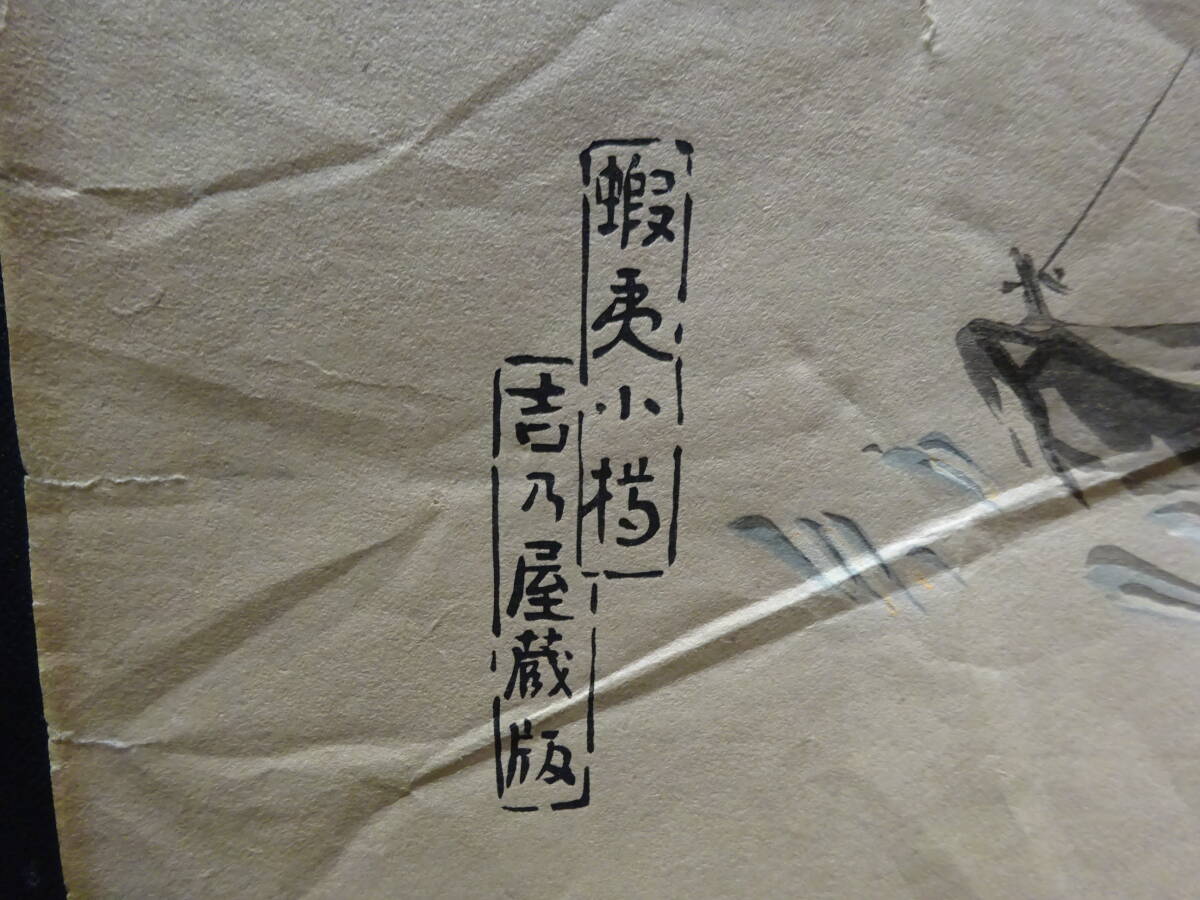 蝦夷小樽
吉乃屋蔵版